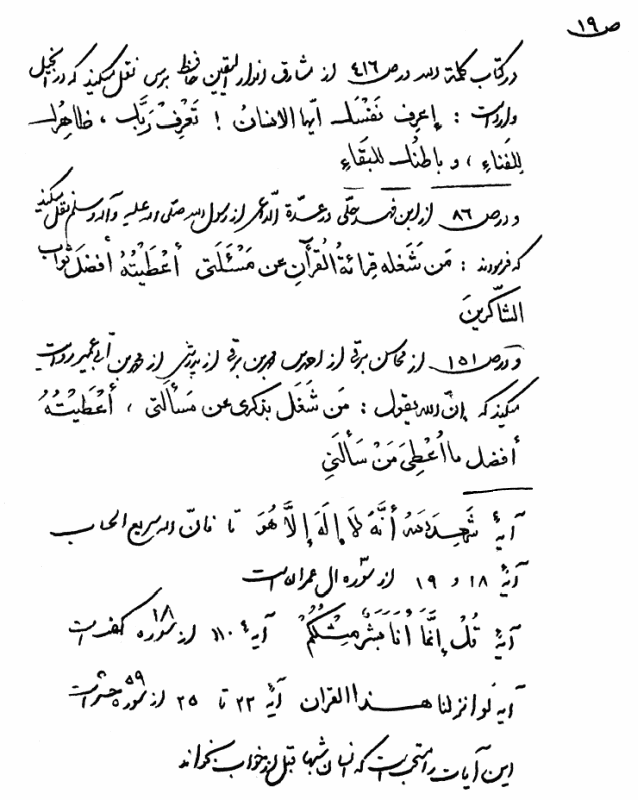 ص ۱۹
در کتاب کلمة الله در ص ۴۱۶ از مشارق انوار الیقین حافظ برسی نقل میکند که در انجیل
وارد است : إعرِف نَفْسَكَ ایّها الانسانُ ! تَعْرِفْ رَبَّكَ ، ظاهِرُكَ
لِلفَناءِ ، و باطنُكَ للبَقَاءِ
و در ص ۸۶ از ابن فهد حلّی در عدّة الدّاعی از رسول الله صلی الله علیه و آله و سلم نقل میکند
که فرمودند : مَن شَغَله قِرائةُ القُرآنِ عن مَسْئَلَتی أعْطَیْتُهُ أفضَلَ ثوابِ
الشاکّرینَ
و در ص ۱۵۱ از محاسن برقی از احمد بن محمد بن برقی از پدرش از محمد بن أبی عمیر روایت
میکند که إنّ الله یقول : مَن شَغَلَ بذکری عن مَسألَتی ، أعْطَیْتُهُ
أفضل ما أُعْطِیَ مَنْ سَألَنِی
آیهٔ شَهِدَ اللهُ أنَّهُ لَا إلَهَ إلَّا هُوَ تا فانّ الله سریع الحساب
آیهٔ ۱۸ و ۱۹ از سوره ال عمران است
آیهٔ قُلْ إنَّمَا أنَا بَشَرٌ مِثْلُكُمْ آیه ۱۱۰ از سوره ۱۸ کهف است
آیه لو انزلنا هذا القران آیهٔ ۲۲ تا ۲۵ از سوره ۵۹ حشر است
این آیات را مستحب است که انسان شبها قبل از خواب بخواند